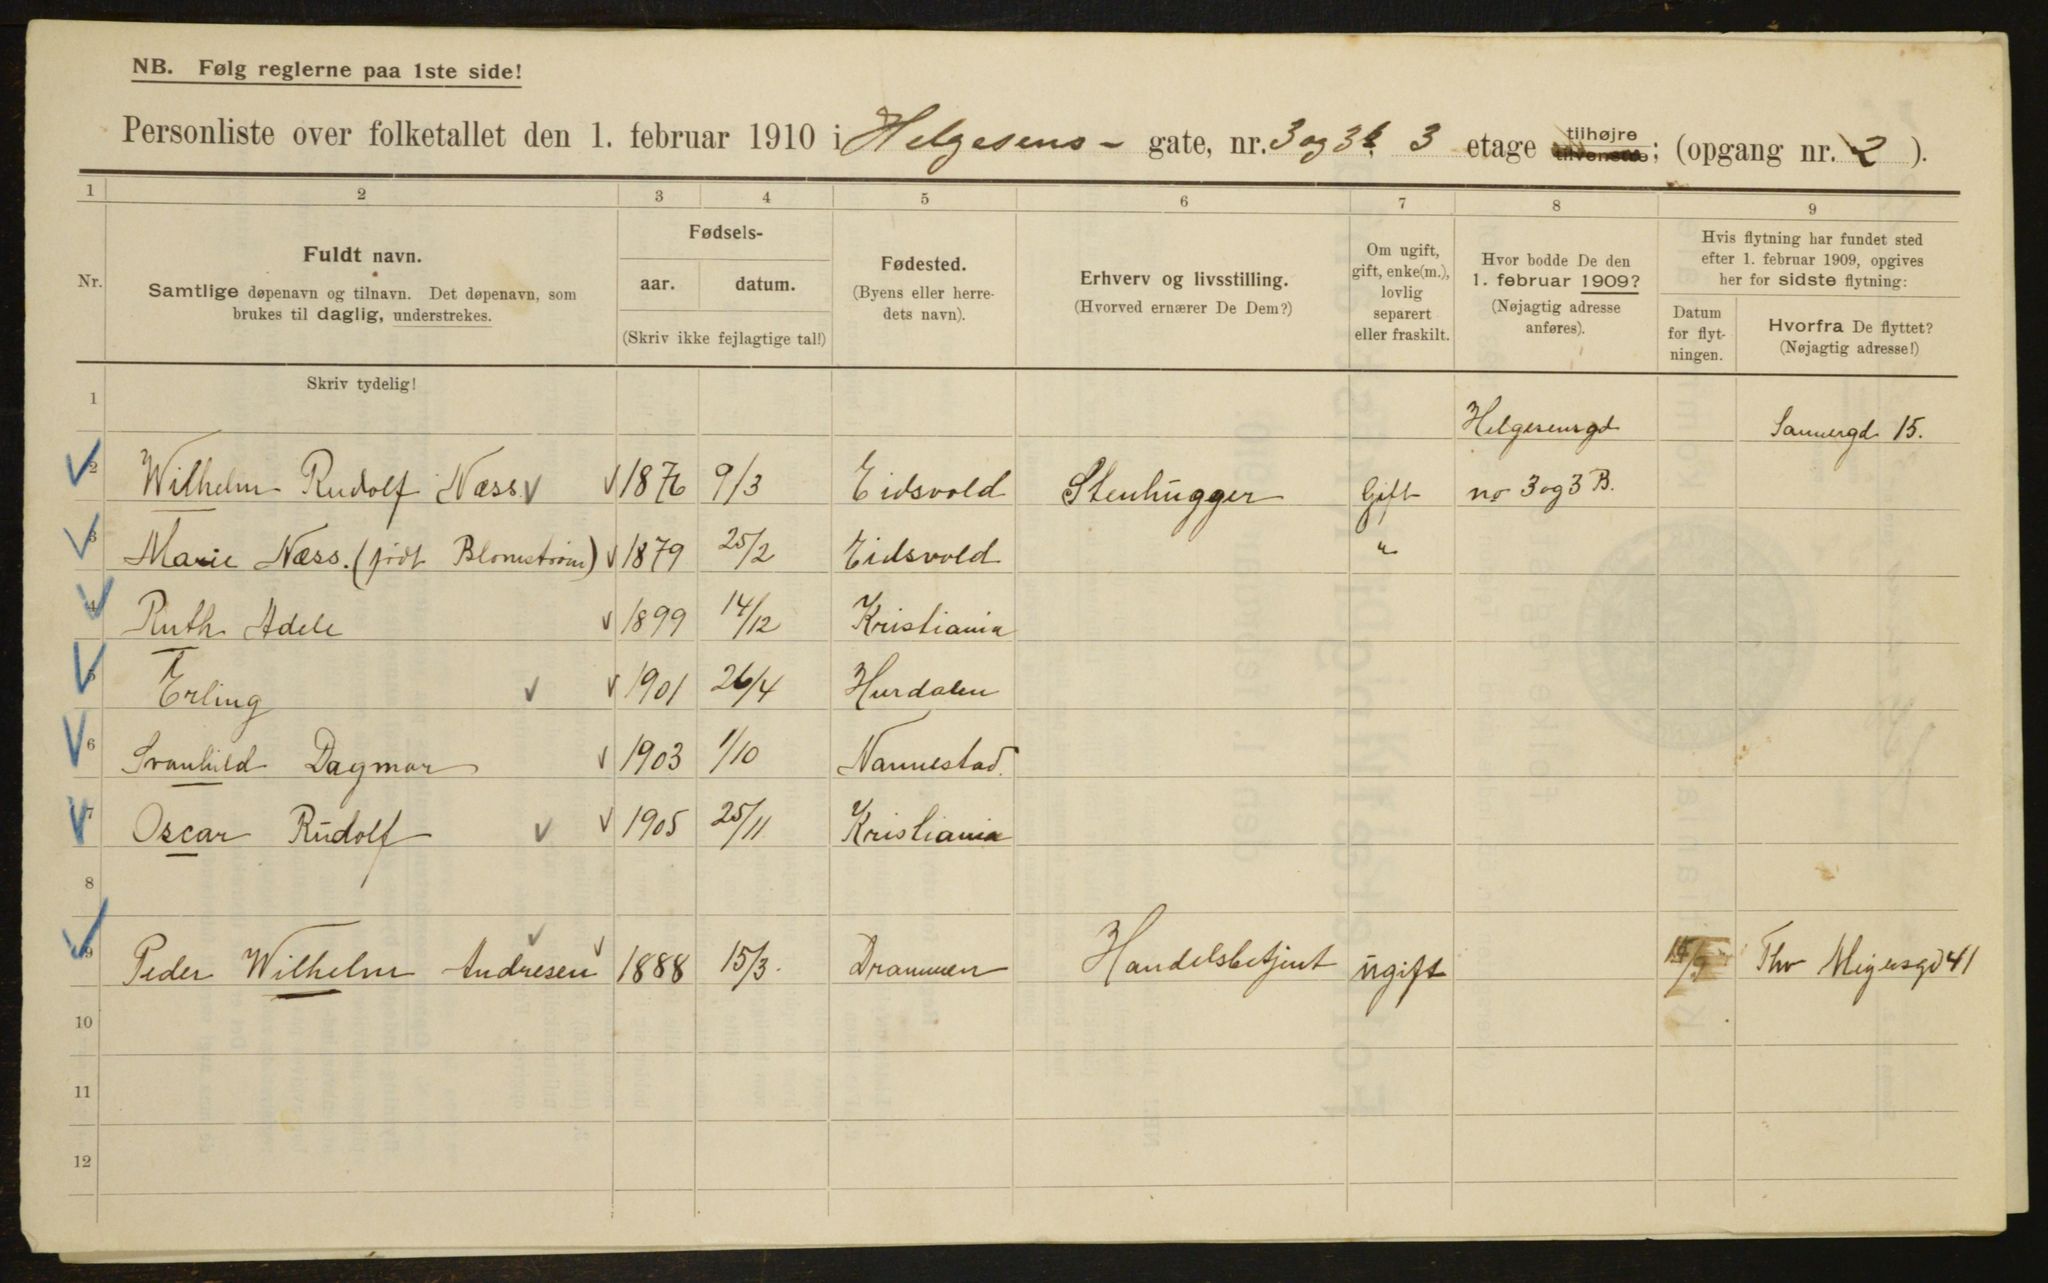 NB. Følg reglerne paa 1ste side!
Personliste over folketallet den 1. februar 1910 i Helgesens - gate, nr. 3 og 3b, 3 etage tilhøjre tilvenstre; (opgang nr. 2 ).
1 2 3 4 5 6 7 8 9
Nr.
Fuldt navn.
Samtlige døpenavn og tilnavn. Det døpenavn, som
brukes til daglig, understrekes.
Fødsels-
aar. datum.
(Skriv ikke fejlagtige tal!)
Fødested.
(Byens eller herre-
dets navn).
Erhverv og livsstilling.
(Hvorved ernærer De Dem?)
Om ugift,
gift, enke(m.),
lovlig
separert
eller fraskilt.
Hvor bodde De den
1. februar 1909?
(Nøjagtig adresse
anføres).
Hvis flytning har fundet sted
efter 1. februar 1909, opgives
her for sidste flytning:
Datum
for flyt-
ningen.
Hvorfra De flyttet?
(Nøjagtig adresse!)
Skriv tydelig!
1 Helgesensgd Sannergd 15.
2 Wilhelm Rudolf Næss 1876 9/3 Eidsvold Stenhugger Gift no 3 og 3 B.
3 Marie Næss. (født Blomstrøm) 1879 25/2 Eidsvold "
4 Ruth Adele 1899 14/12 Kristiania
5 Erling 1901 26/4 Hurdalen
6 Svanhild Dagmar 1903 1/10 Nannestad.
7 Oscar Rudolf 1905 25/11 Kristiania
8
9 Peder Wilhelm Andresen 1888 15/3. Drammen Handelsbetjent ugift 15/9 Thv Meyersgd 41
10
11
12